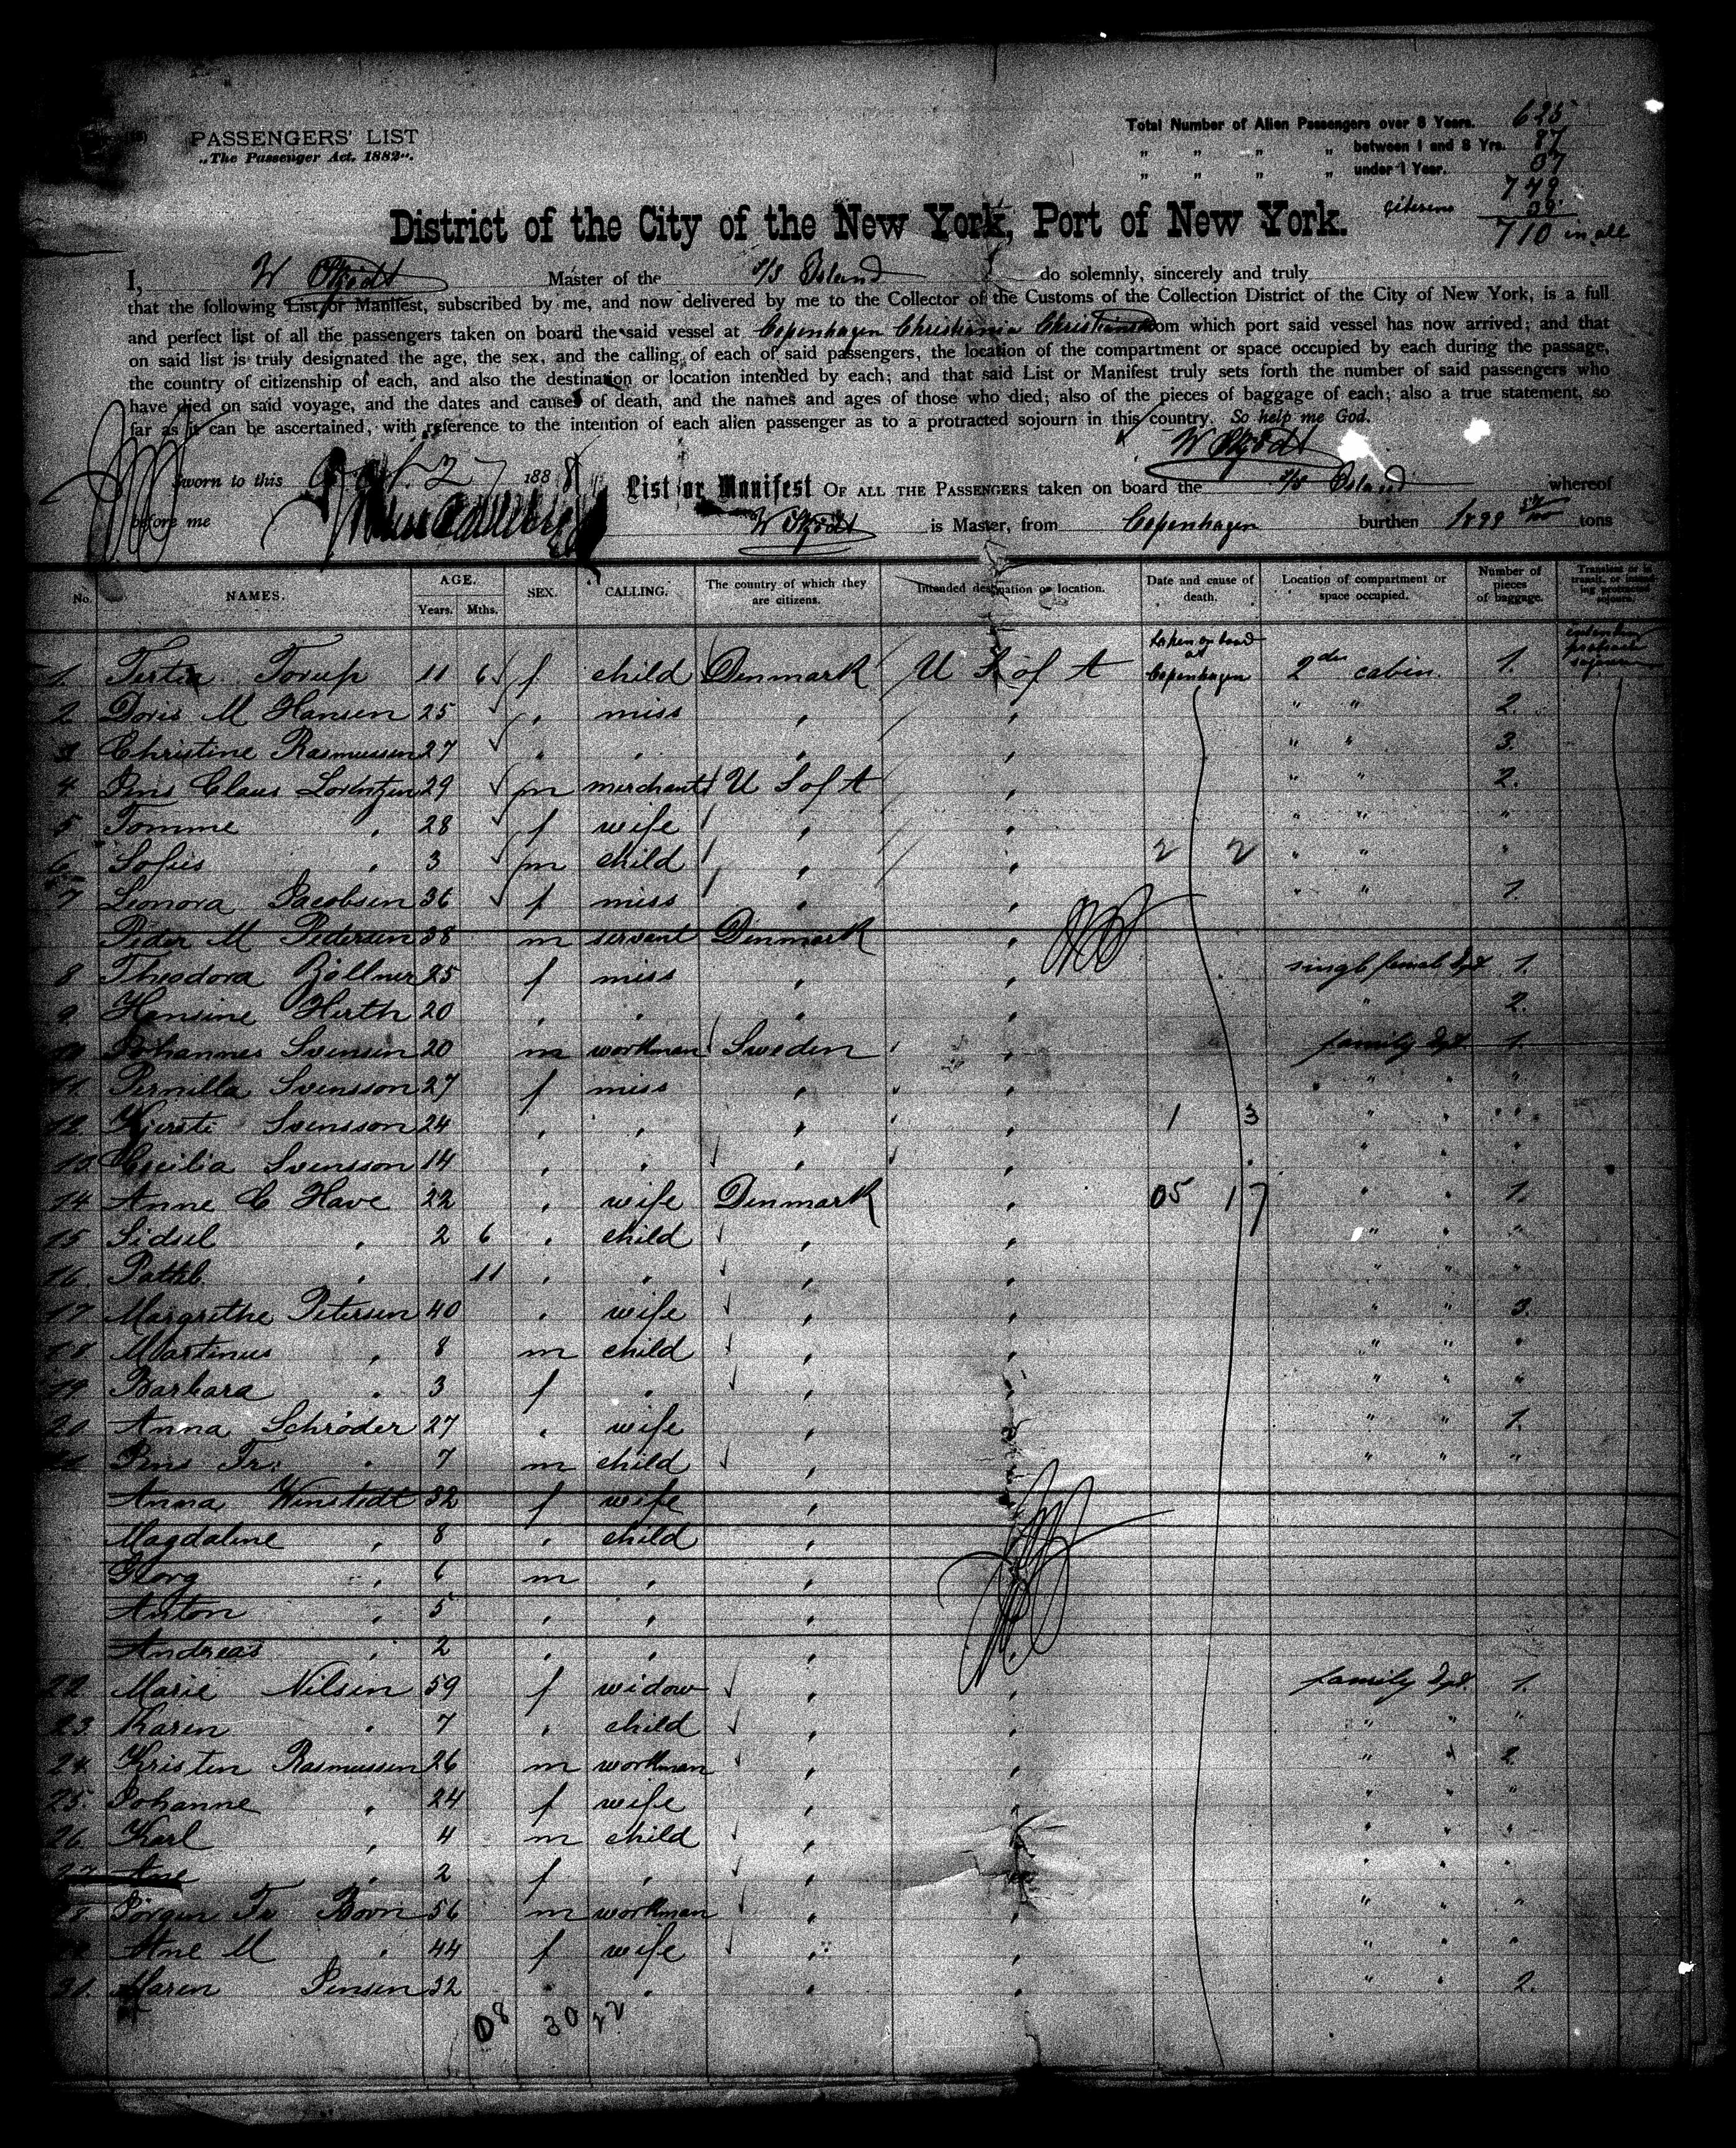 PASSENGERS' LIST
„The Passenger Act, 1882".
Total Number of Alien Passengers over 8 Years. 625
„ „ „ „ between 1 and 8 Yrs. 87
„ „ „ „ under 1 Year. 37
749
710 in all
District of the City of the New York, Port of New York.
I, W Master of the s/s Island do solemnly, sincerely and truly
that the following List or Manifest, subscribed by me, and now delivered by me to the Collector of the Customs of the Collection District of the City of New York, is a full
and perfect list of all the passengers taken on board the said vessel at Copenhagen Christiania om which port said vessel has now arrived; and that
on said list is truly designated the age, the sex, and the calling of each of said passengers, the location of the compartment or space occupied by each during the passage,
the country of citizenship of each, and also the destination or location intended by each; and that said List or Manifest truly sets forth the number of said passengers who
have died on said voyage, and the dates and causes of death, and the names and ages of those who died; also of the pieces of baggage of each; also a true statement, so
far as it can be ascertained, with reference to the intention of each alien passenger as to a protracted sojourn in this country. So help me God.
Sworn to this 27 1888 List or Manifest OF ALL THE PASSENGERS taken on board the s/s Island whereof
before me W is Master, from Copenhagen burthen tons
No. NAMES. AGE. Years. Mths. SEX. CALLING. The country of which they are citizens. Intended destination or location. Date and cause of death. Location of compartment or space occupied. Number of pieces of baggage. Transient or in transit, or intending protracted sojourn.
1. Torup 11 6 f child Denmark U S of A Taken on board at Copenhagen 2de cabin. 1.
2 Doris M Hansen 25 " miss " " " " 2.
3 Christine Rasmussen 27 " " " " " " 3.
4 Jens Claus Lorentzen 29 m merchant U S of A " " " 2.
5 Tomme " 28 f wife " " " " "
6 Sofus " 3 m child " " 2 2 " " "
7 Leonora Jacobsen 36 f miss " " " " 1.
Peder M Pedersen 38 m servant Denmark "
8 Theodora Zöllner 25 f miss " " single female dpt 1.
9 Hansine Hirth 20 " " " " " 2.
10 Johannes Svensen 20 m workman Sweden " family dpt 1.
11. Pernilla Svensson 27 f miss " " " " "
12. Kjersti Svensson 24 " " " " 1 3 " " "
13 Cecilia Svensson 14 " " " " " " "
14 Anne C Have 22 " wife Denmark " 05 17 " " 1.
15 Sidsel " 2 6 " child " " " " "
16. " 11 " " " " " " "
17 Margrethe Petersen 40 " wife " " " " 3.
18 Martinus " 8 m child " " " " "
19 Barbara " 3 f " " " " " "
20 Anna Schröder 27 " wife " " " " 1.
21 Jens Fr. " 7 m child " " " " "
Anna Winstedt 32 f wife "
Magdaline " 8 " child "
Georg " 6 m " "
Anton " 5 " " "
Andreas " 2 " " "
22. Marie Nilsen 59 f widow " " family dpt. 1.
23 Karen " 7 " child " " " " "
24 Kristen Rasmussen 26 m workman " " " " 2.
25. Johanne " 24 f wife " " " " "
26 Karl " 4 m child " " " " "
27 Ane " 2 f " " " " " "
Jörgen Fr 56 m workman " " " " "
Ane M " 44 f wife " " " " "
Maren Jensen 32 " " " " " " 2.
08 30 22